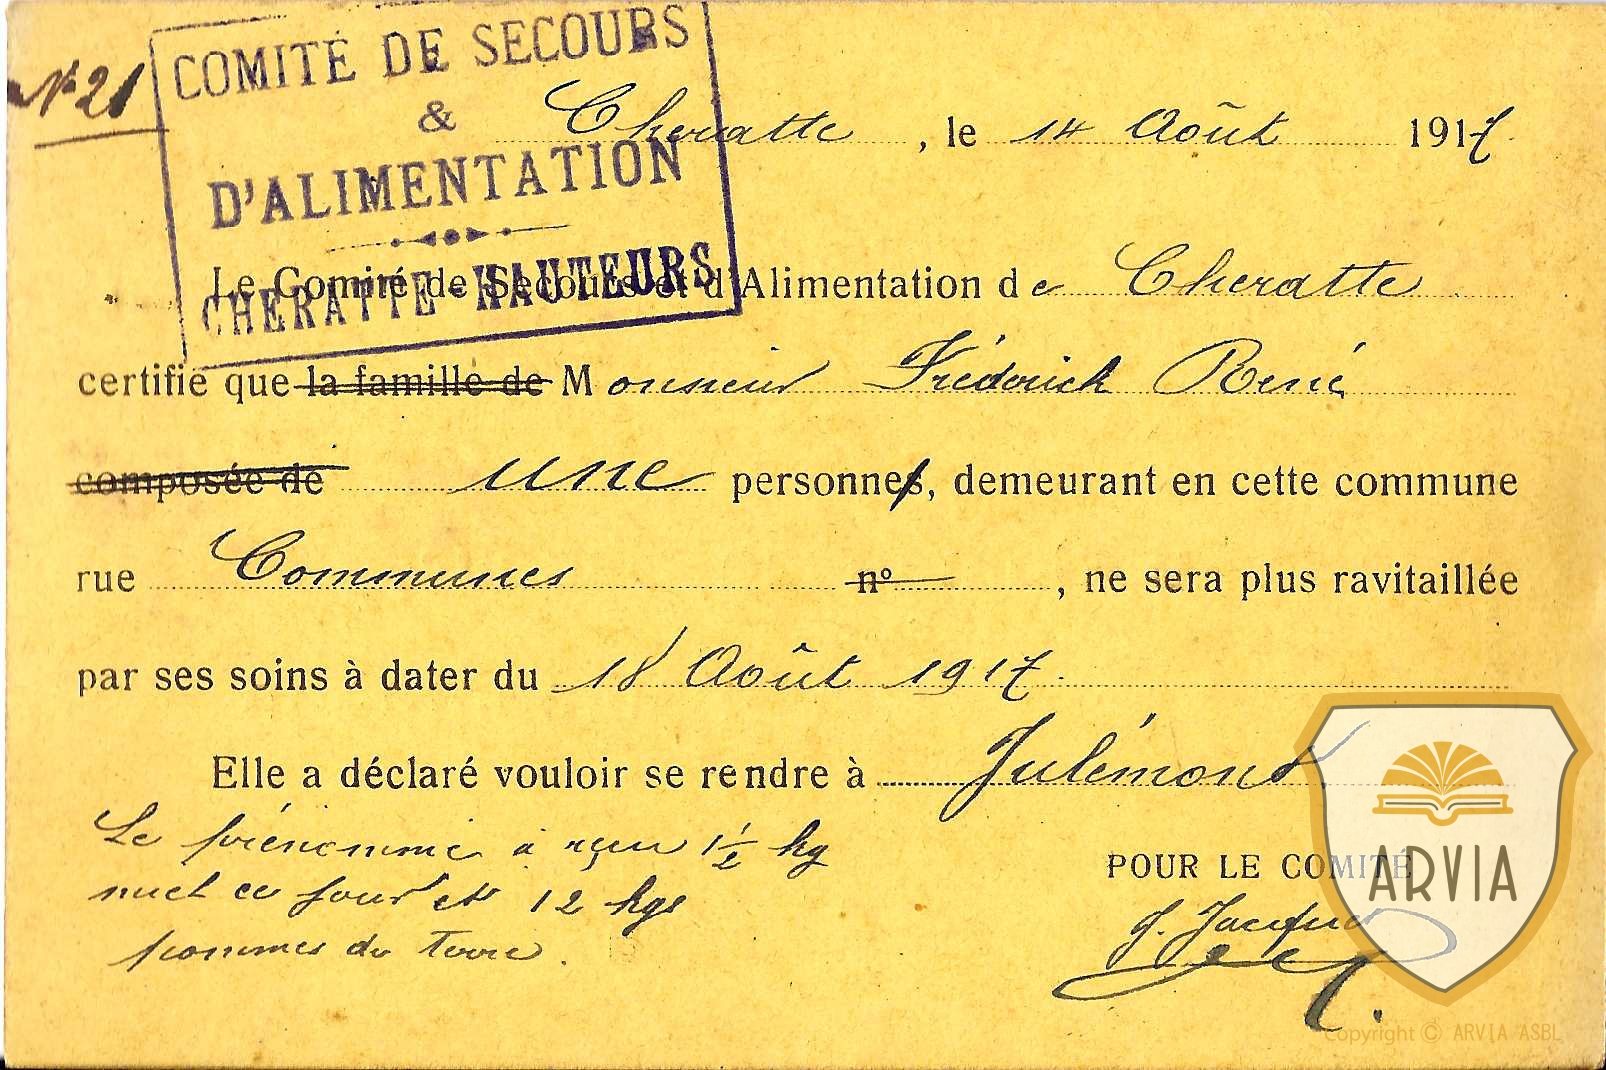 N° 21
COMITÉ DE SECOURS
&
D'ALIMENTATION
CHERATTE-HAUTEURS
Cheratte, le 14 Août 1917.
Le Comité de Secours et d'Alimentation de Cheratte
certifie que la famille de Monsieur Fréderick René
composée de une personnes, demeurant en cette commune
rue Communes n°, ne sera plus ravitaillée
par ses soins à dater du 18 Août 1917.
Elle a déclaré vouloir se rendre à Julémont
Le prénommé a reçu 1 1/2 kg
ce jour et 12 kgs
pommes de terre.
POUR LE COMITÉ
J.
ARVIA
Copyright © ARVIA ASBL